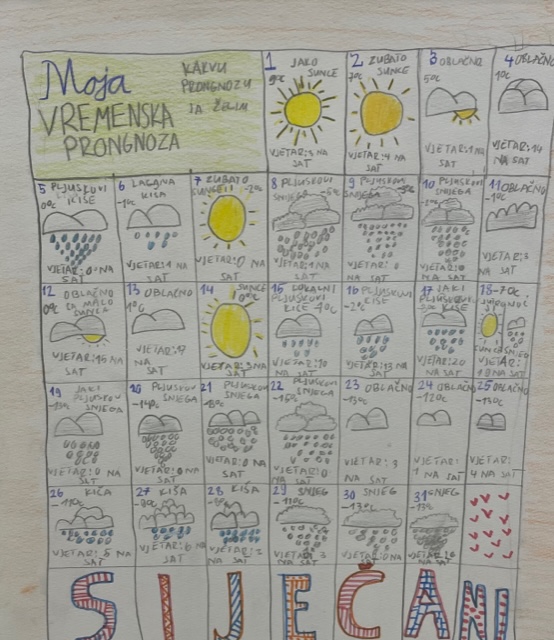 Moja
VREMENSKA
PRONGNOZA
KAKVU
PRONGNOZU
JA ŽELIM
1 JAKO
9°C SUNCE
VJETAR:3 NA
SAT
2 ZUBATO
7°C SUNCE
VJETAR:4 NA
SAT
3 OBLAČNO
5°C
VJETAR:1 NA
SAT
4 OBLAČNO
1°C
VJETAR:14
NA SAT
5 PLJUSKOVI
0°C KIŠE
VJETAR:0 NA
SAT
6 LAGANA
-1°C KIŠA
VJETAR:4 NA
SAT
7 ZUBATO
SUNCE -2°C
VJETAR:0 NA
SAT
8 PLJUSKOVI
SNIJEGA
NA
SAT
9 PLJUSKOVI
VJETAR: 0
NA SAT
10 PLJUSKOVI
SNJEGA
VJETAR: 0
NA SAT
11 OBLAČNO
-1°C
VJETAR:3
NA
SAT
12 OBLAČNO
0°C SA MALO
SUNCA
VJETAR:15 NA
SAT
13 OBLAČNO
1°C
VJETAR:17
NA
SAT
14 SUNCE
0°C
VJETAR:3 NA
SAT
15
PLJUSKOVI
KIŠE
VJETAR:10
NA SAT
16 PLJUSKOVI
-2°C KIŠE
VJETAR:13 NA
SAT
17 JAKI
PLJUSKOVI
KIŠE
VJETAR:20
NA SAT
18 -7°C
NA
SAT
19 JAKI
-13°C PLJUSKOVI
SNJEGA
VJETAR:0 NA
SAT
20 PLJUSKOVI
-14°C SNJEGA
VJETAR:0 NA
SAT
21 PLJUSKOVI
SNJEGA
VJETAR:0 NA
SAT
22 PLJUSKOVI
-15°C SNJEGA
VJETAR:0
NA SAT
23 OBLAČNO
-13°C
VJETAR: 3
NA SAT
24 OBLAČNO
-12°C
VJETAR:
1 NA SAT
25 OBLAČNO
-13°C
VJETAR:
4 NA SAT
26 KIČA
-11°C
VJETAR: 5 NA
SAT
27 KIŠA
VJETAR: 6 NA
SAT
28 KIŠA
VJETAR: 2
NA SAT
29 SNJEG
-11°C
VJETAR 3
NA SAT
30 SNJEG
-13°C
VJETAR:0 NA
SAT
31 SNJEG
-13°C
VJETAR:
NA SAT
SIJEČANJ